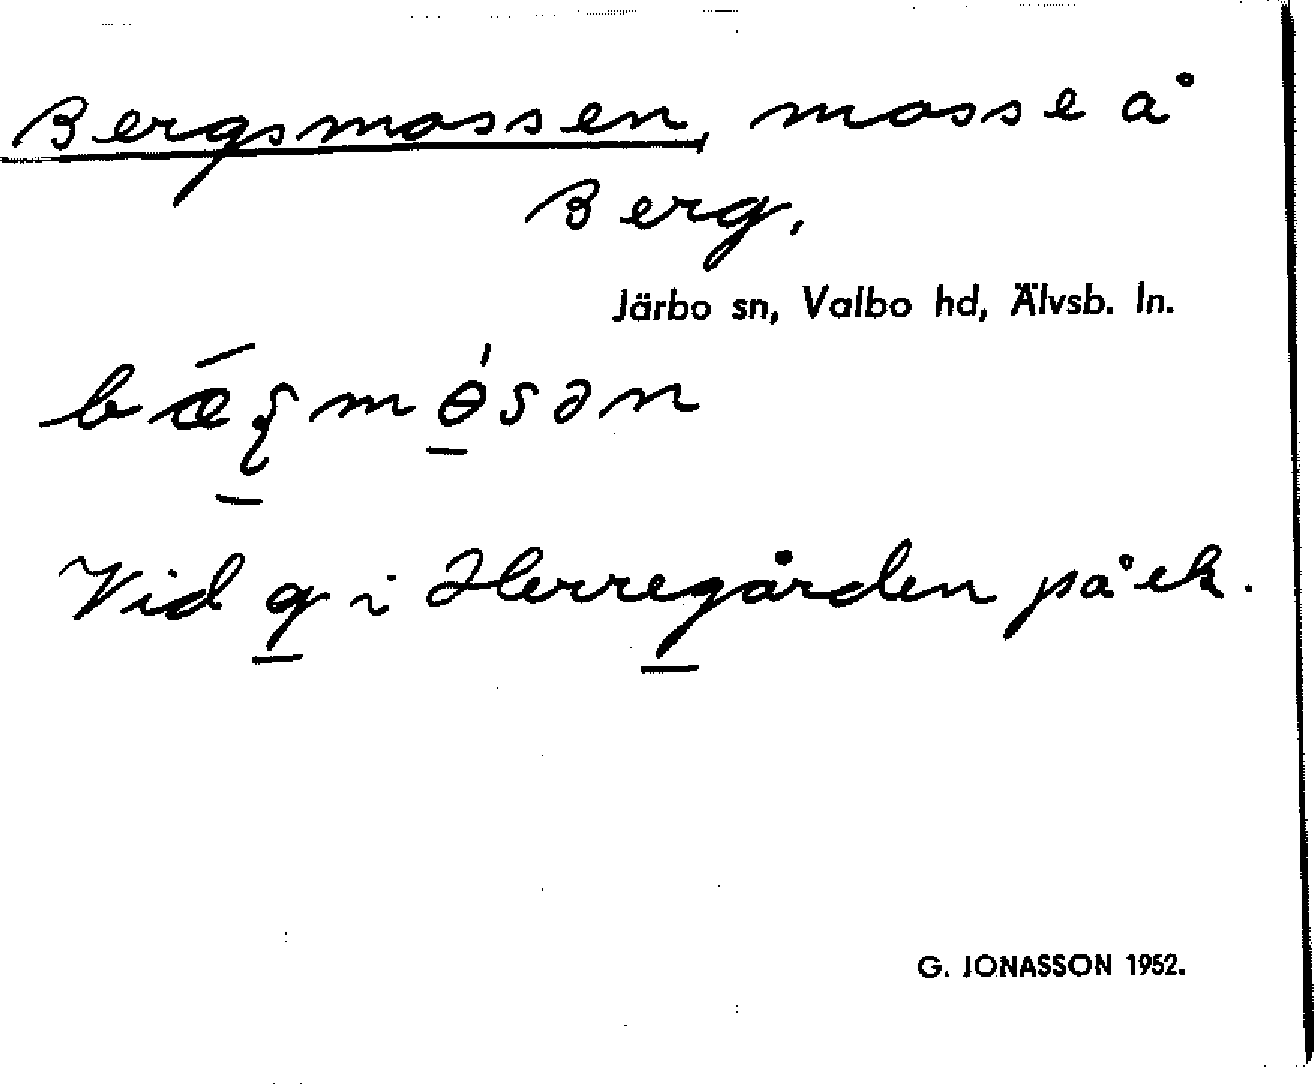 Bergsmossen, mosse å
Berg.
Järbo sn, Valbo hd, Älvsb. ln.
Vid g i Herregården på ek.
G. JONASSON 1952.